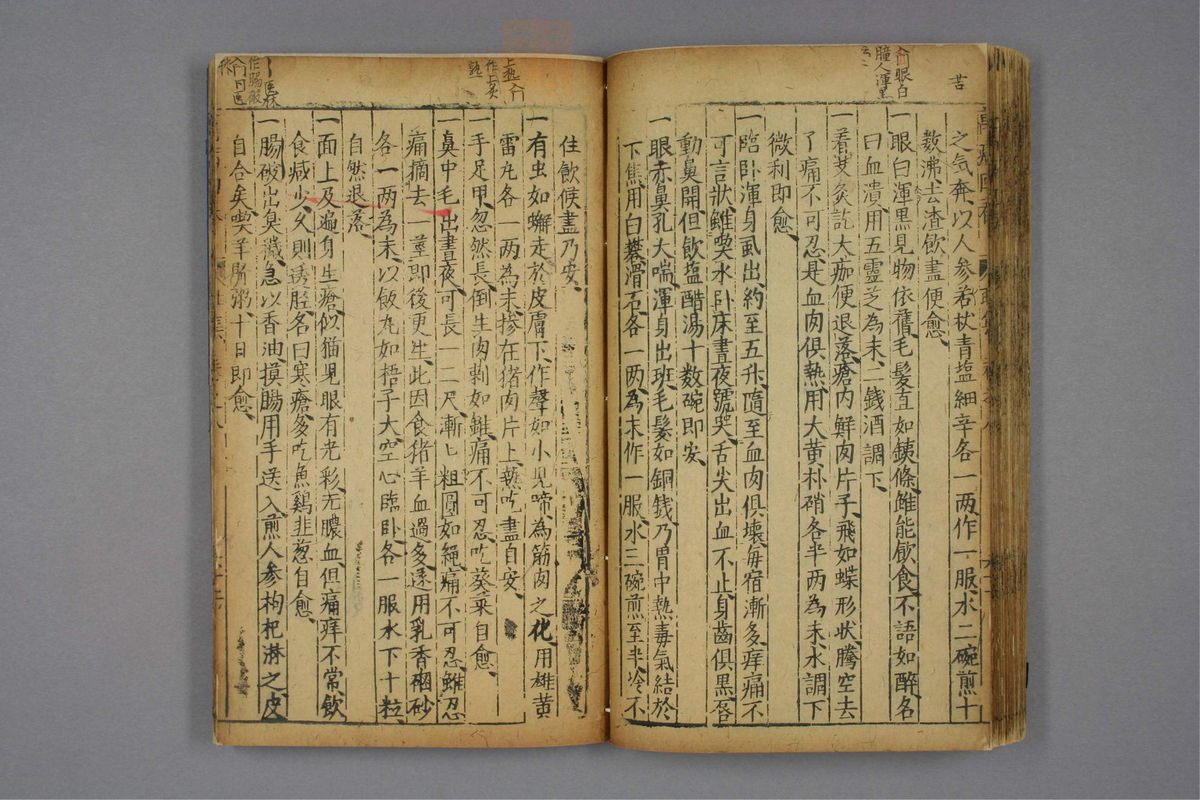 之气奔以人参若杖青塩細辛各一两作一服水二碗煎十
数沸去渣飲盡便愈
一眼白渾黒見物依舊毛髪直如鉄條雖能飲食不語如醉名
曰血潰用五霊芝為末二錢酒調下
一着艾灸訖大痂便退落瘡内鮮肉片子飛如蝶形状騰空去
了痛不可忍是血肉倶熱用大黄朴硝各半两為末水調下
微利即愈
一臨卧渾身虱出約至五升隨至血肉俱壊毎宿漸多痒痛不
可言狀雖喫水卧床晝夜號哭舌尖出血不止身齒俱黒唇
動鼻開但飲塩醋湯十数碗即安
一眼赤鼻孔大喘渾身出班毛髪如銅鐡乃胃中熱毒氣結於
下焦用白礬滑石各一两為末作一服水三碗煎至半冷不
住飲候盡乃安
一有虫如蠏走於皮膚下作聲如小児啼為筋肉之化用雄黄
雷丸各一两為末摻在猪肉片上熟吃盡自安
一手足甲忽然長倒生肉刺如錐痛不可忍吃葵菜自愈
一鼻中毛出晝夜可長一二尺漸匕粗圓如繩痛不可忍雖忍
痛摘去一莖即後更生此因食猪羊血過多遂用乳香硇砂
各一两為末以飯丸如梧子大空心臨卧各一服水下十粒
自然退落
一面上及遍身生瘡似猫児眼有光彩无膿血但痛痒不常飲
食减少久則透脛名曰寒瘡多吃魚鷄韭葱自愈
一腸破出臭穢急以香油摸腸用手送入煎人参枸杞淋之皮
自合矣喫羊腎粥十日即愈
苦
眼白
瞳人渾黒